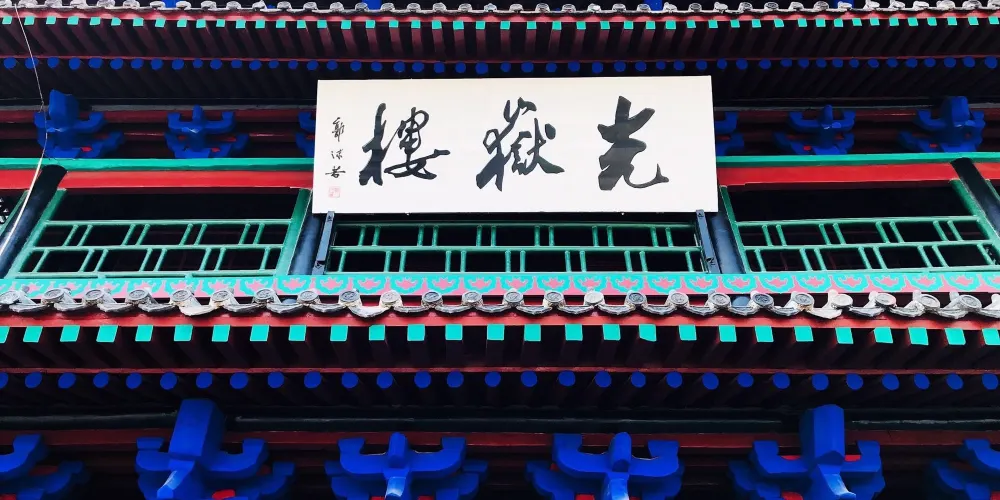 光嶽樓
郭沫若